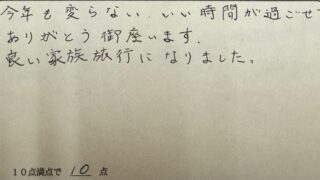 今年も変らない、いい時間が過ごせ
ありがとう御座います.
良い家族旅行になりました。
10点満点で 10 点